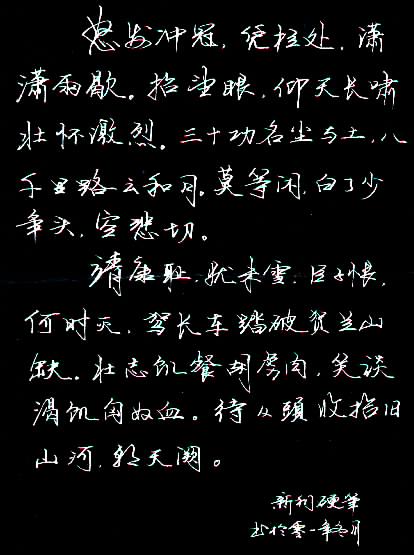 怒发冲冠，凭栏处，潇
潇雨歇。抬望眼，仰天长啸
壮怀激烈。三十功名尘与土，八
千里路云和月。莫等闲，白了少
年头，空悲切。
靖康耻，犹未雪，臣子恨，
何时灭，驾长车踏破贺兰山
缺。壮志饥餐胡虏肉，笑谈
渴饮匈奴血。待从頭收拾旧
山河，朝天阙。
新利硬筆
书於零一年冬月